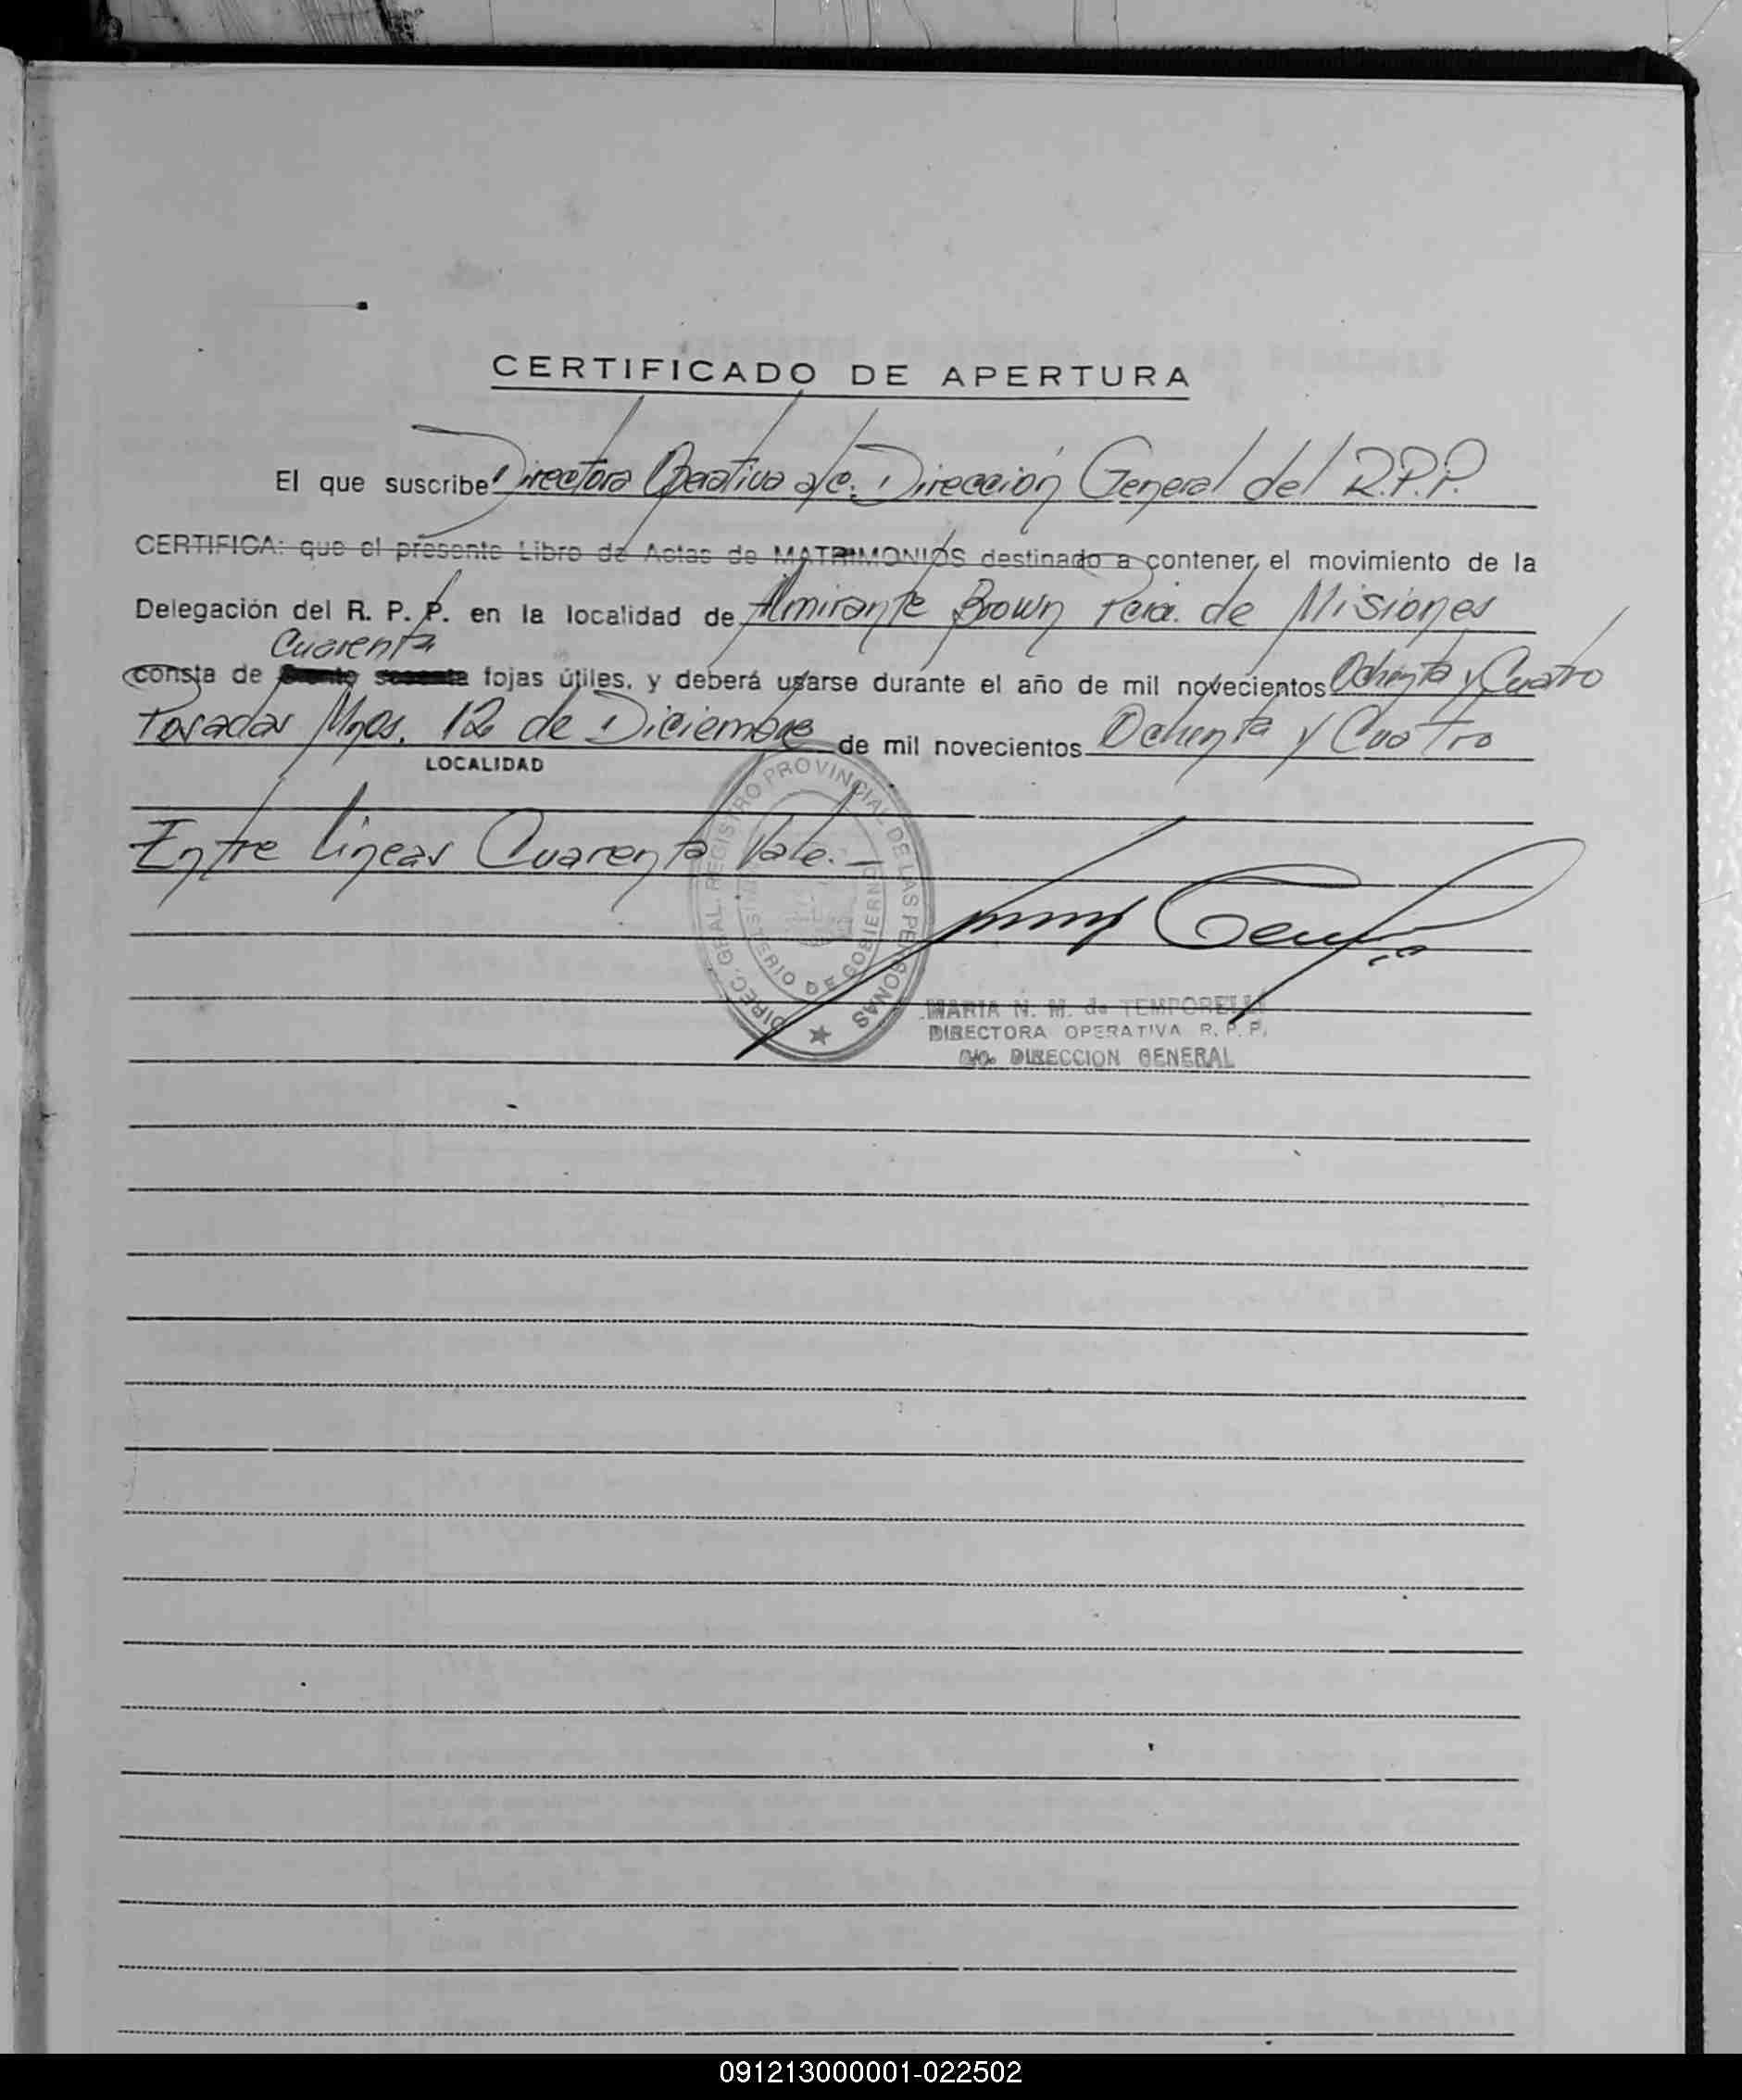 CERTIFICADO DE APERTURA
El que suscribe Directora Operativa a/c. Dirección General del R.P.P.
CERTIFICA: que el presente Libro de Actas de MATRIMONIOS destinado a contener el movimiento de la
Delegación del R. P. P. en la localidad de Almirante Brown Pcia. de Misiones
Cuarenta
consta de fojas útiles, y deberá usarse durante el año de mil novecientos Ochenta y Cuatro
Posadas Mnes. 12 de Diciembre de mil novecientos Ochenta y Cuatro
LOCALIDAD
Entre lineas Cuarenta Vale.-
DIREC. GRAL. REGISTRO PROVINCIAL DE LAS PERSONAS
MINISTERIO DE GOBIERNO
MARIA N. M. de TEMPORELLI
DIRECTORA OPERATIVA R. P. P.
a/c. DIRECCION GENERAL
091213000001-022502